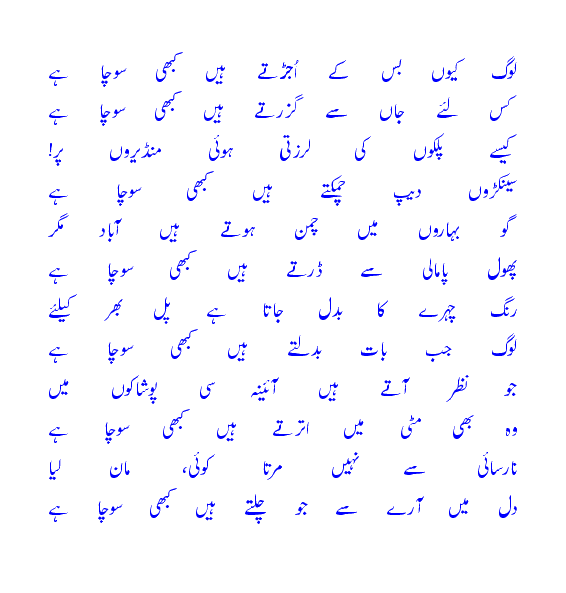 لوگ کیوں بس کے اُجڑتے ہیں کبھی سوچا ہے
کس لئے جاں سے گزرتے ہیں کبھی سوچا ہے
کیسے پلکوں کی لرزتی ہوئی منڈیروں پر!
سینکڑوں دیپ چمکتے ہیں کبھی سوچا ہے
گو بہاروں میں چمن ہوتے ہیں آباد مگر
پھول پامالی سے ڈرتے ہیں کبھی سوچا ہے
رنگ چہرے کا بدل جاتا ہے پل بھر کیلئے
لوگ جب بات بدلتے ہیں کبھی سوچا ہے
جو نظر آتے ہیں آئینہ سی پوشاکوں میں
وہ بھی مٹی میں اترتے ہیں کبھی سوچا ہے
نارسائی سے نہیں مرتا کوئی، مان لیا
دل میں آرے سے جو چلتے ہیں کبھی سوچا ہے